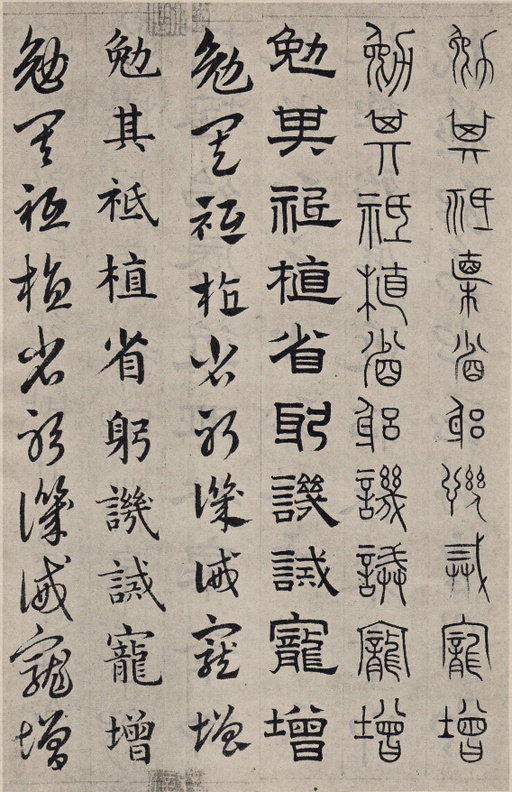 勉其祗植省躬譏誡寵增
勉其祗植省躬譏誡寵增
勉其祗植省躬譏誡寵增
勉其祗植省躬譏誡寵增
勉其祗植省躬譏誡寵增
勉其祗植省躬譏誡寵增